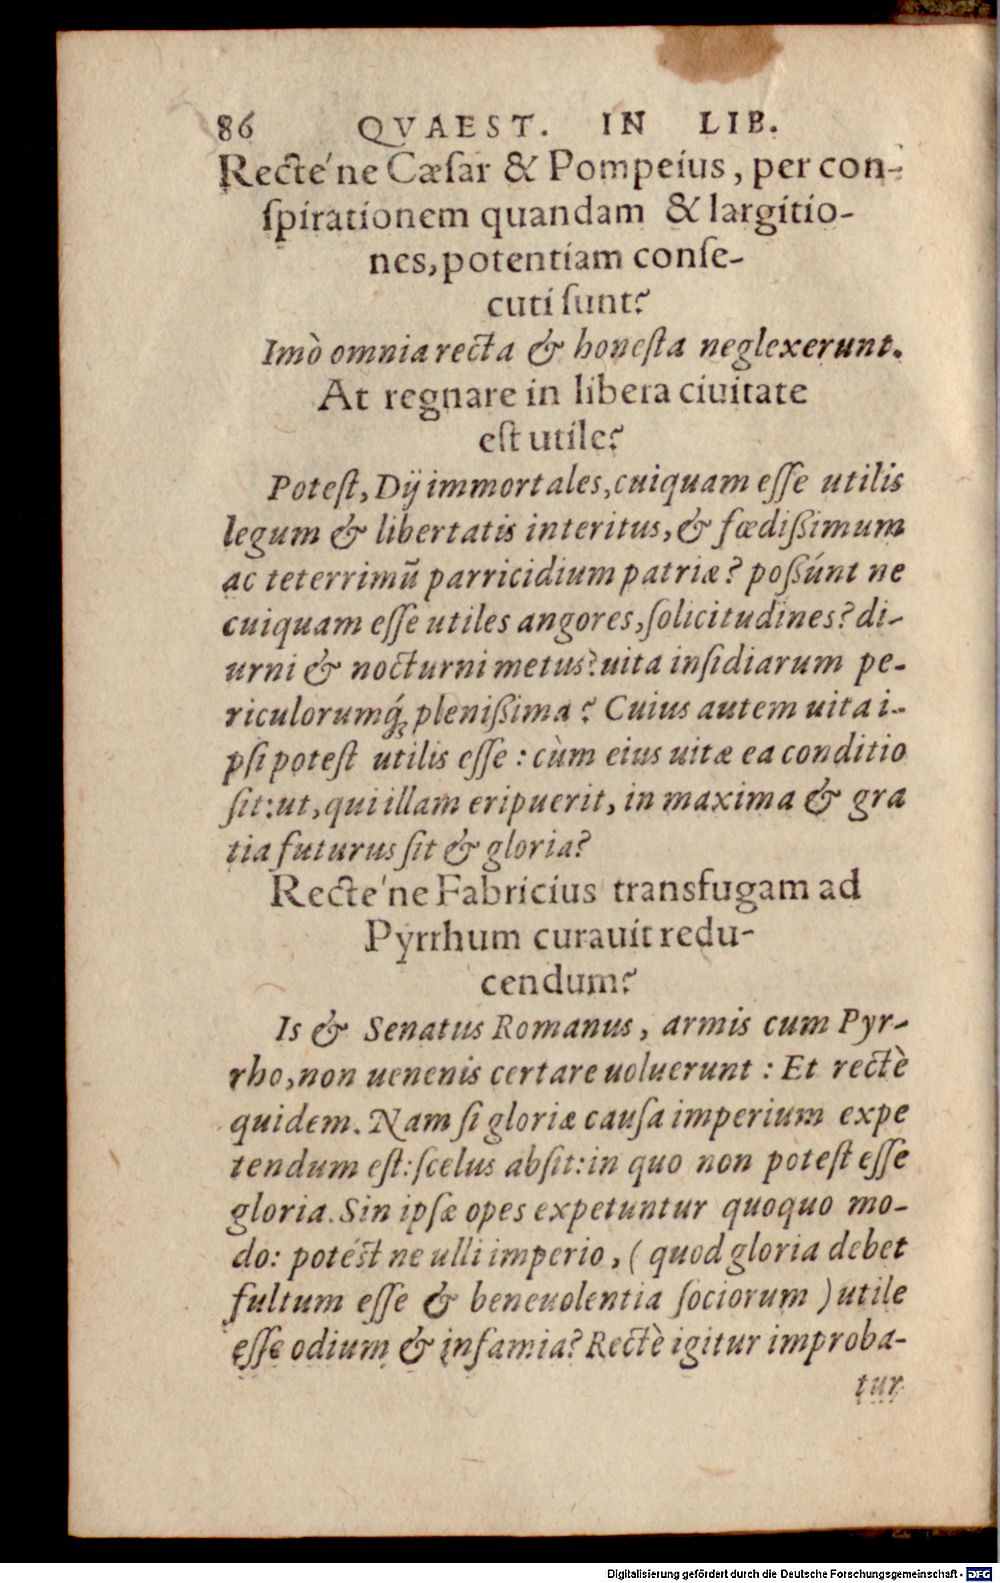 86 QVAEST. IN LIB.
Recte'ne Cæsar & Pompeius, per con-
spirationem quandam & largitio-
nes, potentiam conse-
cuti sunt?
Imò omnia recta & honesta neglexerunt.
At regnare in libera ciuitate
est utile?
Potest, Dij immortales, cuiquam esse utilis
legum & libertatis interitus, & fœdißimum
ac teterrimū parricidium patriæ? poßúnt ne
cuiquam esse utiles angores, solicitudines? di-
urni & nocturni metus? uita insidiarum pe-
riculorumq́; plenißima? Cuius autem uita i-
psi potest utilis esse: cùm eius uitæ ea conditio
sit: ut, qui illam eripuerit, in maxima & gra
tia futurus sit & gloria?
Recte'ne Fabricius transfugam ad
Pyrrhum curauit redu-
cendum?
Is & Senatus Romanus, armis cum Pyr-
rho, non uenenis certare uoluerunt: Et rectè
quidem. Nam si gloriæ causa imperium expe
tendum est: scelus absit: in quo non potest esse
gloria. Sin ipsæ opes expetuntur quoquo mo-
do: potést ne ulli imperio, (quod gloria debet
fultum esse & beneuolentia sociorum) utile
esse odium & infamia? Rectè igitur improba-
tur
Digitalisierung gefördert durch die Deutsche Forschungsgemeinschaft - DFG